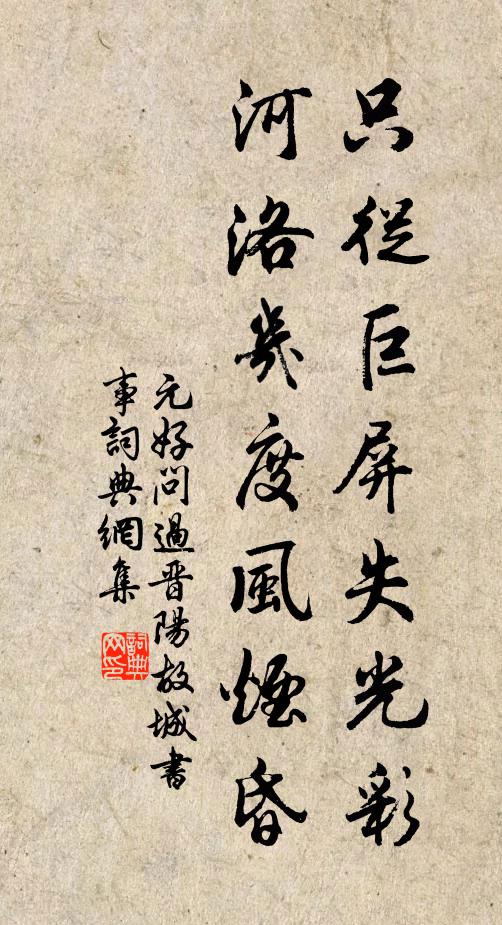 只從巨屏失光彩
河洛幾度風煙昏
元好問過晉陽故城書
事詞典網集
詞典網印